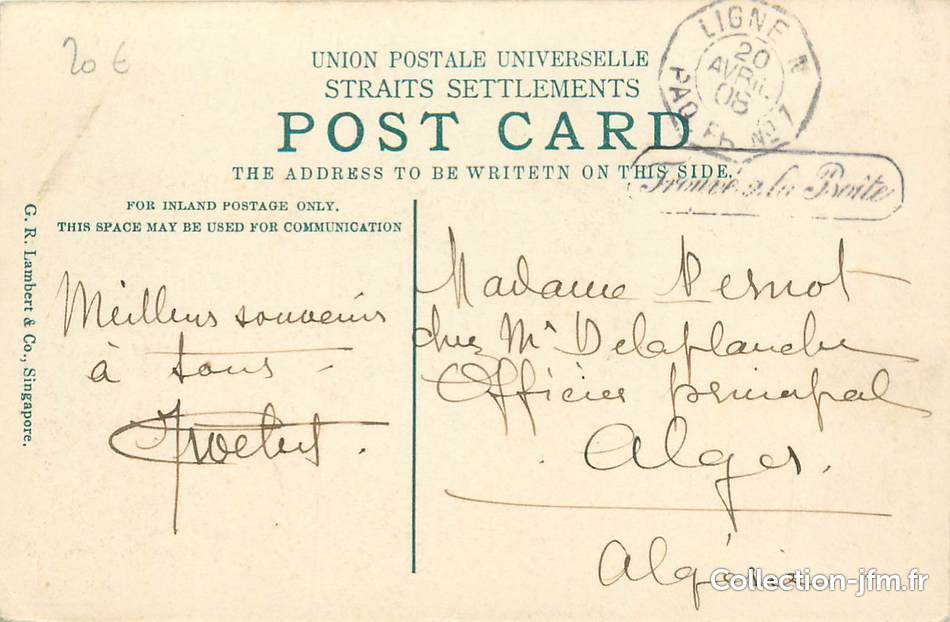 20 €
UNION POSTALE UNIVERSELLE
STRAITS SETTLEMENTS
POST CARD
THE ADDRESS TO BE WRITETN ON THIS SIDE.
LIGNE N
20
AVRIL
08
PAQ. FR. No 7
Trouvé à la Boîte
FOR INLAND POSTAGE ONLY.
THIS SPACE MAY BE USED FOR COMMUNICATION
G. R. Lambert & Co., Singapore.
Meilleurs souvenirs
à tous
Madame
chez Mr Delaplanche
Officier principal
Alger.
Algérie
Collection-jfm.fr